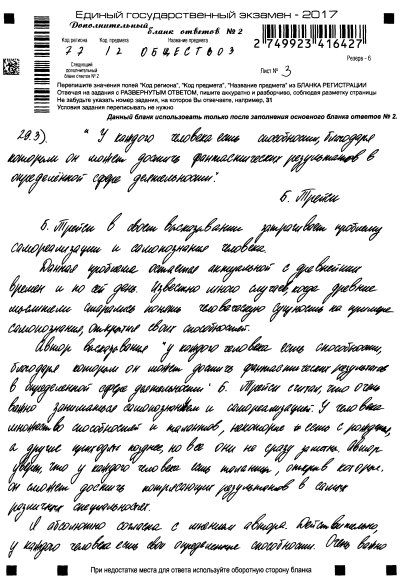 Единый государственный экзамен - 2017
Дополнительный
бланк ответов № 2
Код региона Код предмета Название предмета
77 12 ОБЩЕСТВОЗ
2749923416427
Резерв - 6
Следующий
дополнительный
бланк ответов № 2
Лист № 3
Перепишите значения полей "Код региона", "Код предмета", "Название предмета" из БЛАНКА РЕГИСТРАЦИИ
Отвечая на задания с РАЗВЕРНУТЫМ ОТВЕТОМ, пишите аккуратно и разборчиво, соблюдая разметку страницы
Не забудьте указать номер задания, на которое Вы отвечаете, например, 31
Условия задания переписывать не нужно
Данный бланк использовать только после заполнения основного бланка ответов № 2.
29.3). "У каждого человека есть способности, благодаря
которым он может достичь фантастических результатов в
определённой сфере деятельности".
Б. Трейси
Б. Трейси в своем высказывании затрагивает проблему
самореализации и самопознания человека.
Данная проблема остается актуальной с древнейших
времен и по сей день. Известно много случаев, когда древние
мыслители старались понять человеческую сущность на примере
самопознания, открытие своих способностей.
Автор высказывания "у каждого человека есть способности,
благодаря которым он может достичь фантастических результатов
в определенной сфере деятельности" Б. Трейси считал, что очень
важно заниматься самопознанием и самореализацией. У человека
множество способностей и талантов, некоторые есть с рождения,
а другие приходят позднее, но все они не сразу заметны. Автор
уверен, что у каждого человека есть таланты, открыв которые
он сможет достичь потрясающих результатов в самых
различных специальностях.
Я абсолютно согласна с мнением автора. Действительно,
у каждого человека есть свои определенные способности. Очень важно
При недостатке места для ответа используйте оборотную сторону бланка